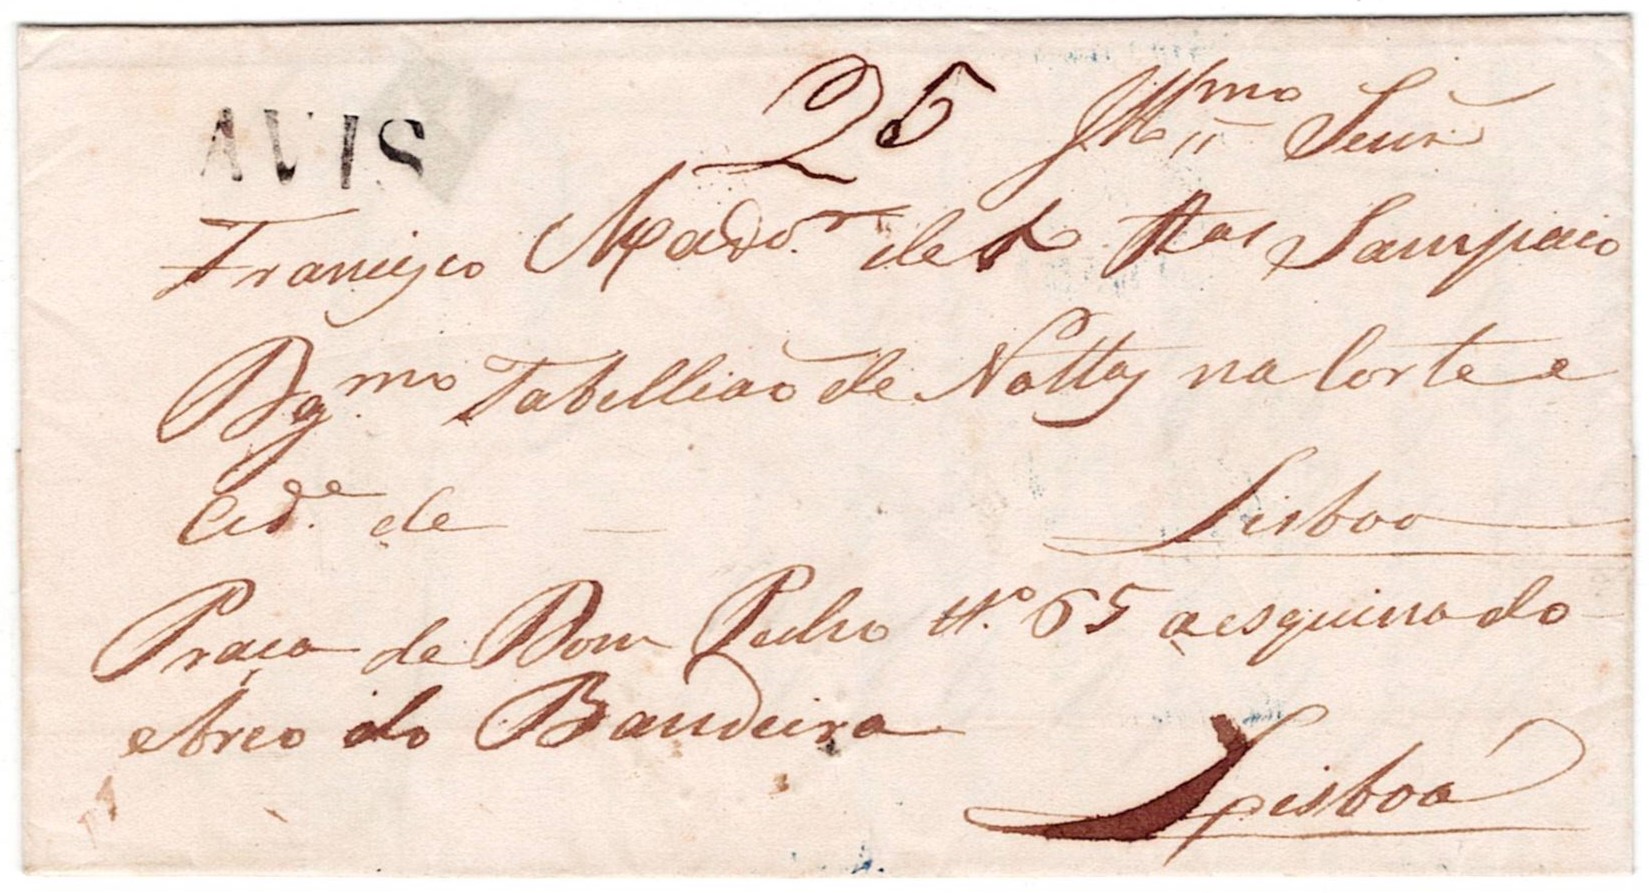 AVIS
25 Illmo Senr
Francisco Mador de Sampaio
Dgmo Tabellião de Nottas na Corte e
Cide de — Lisboa
Praça de Dom Pedro Nº 65 a esquina do
Arco do Bandeira
Lisboa